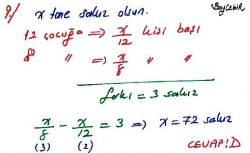 Ç/ x tane sakız olsun.
12 çocuğa ⇒ x/12 kişi başı
8 " ⇒ x/8 " "
farkı = 3 sakız
x/8 - x/12 = 3 ⇒ x = 72 sakız
(3) (2)
CEVAP: D